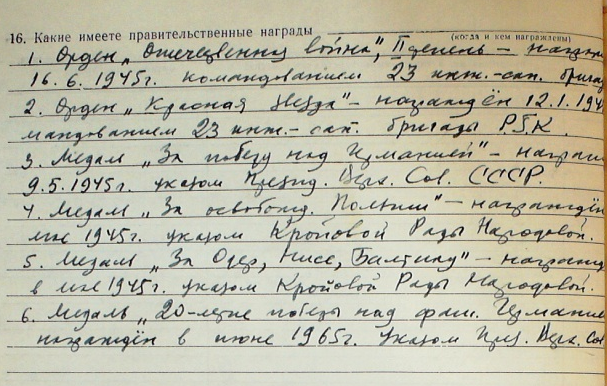 16. Какие имеете правительственные награды
(когда и кем награждены)
1. Орден „Отечественная война", II степень – награж
16.6.1945г. командованием 23 инж.-сап. бригад
2. Орден „Красная звезда" – награждён 12.1.194
мандованием 23 инж.- сап. бригады Р.Г.К.
3. Медаль „За победу над Германией" – награж
9.5.1945г. указом Презид. Верх. Сов. СССР.
4. Медаль „За освобожд. Польши" – награждён
мае 1945г. указом Кройовой Рады Народовой.
5. Медаль „За Одер, Нисе, Балтику" – награжд
в мае 1945г. указом Кройовой Рады Народовой.
6. Медаль „20-летие победы над фаш. Германие
награждён в июне 1965г. указом През. Верх. Сов